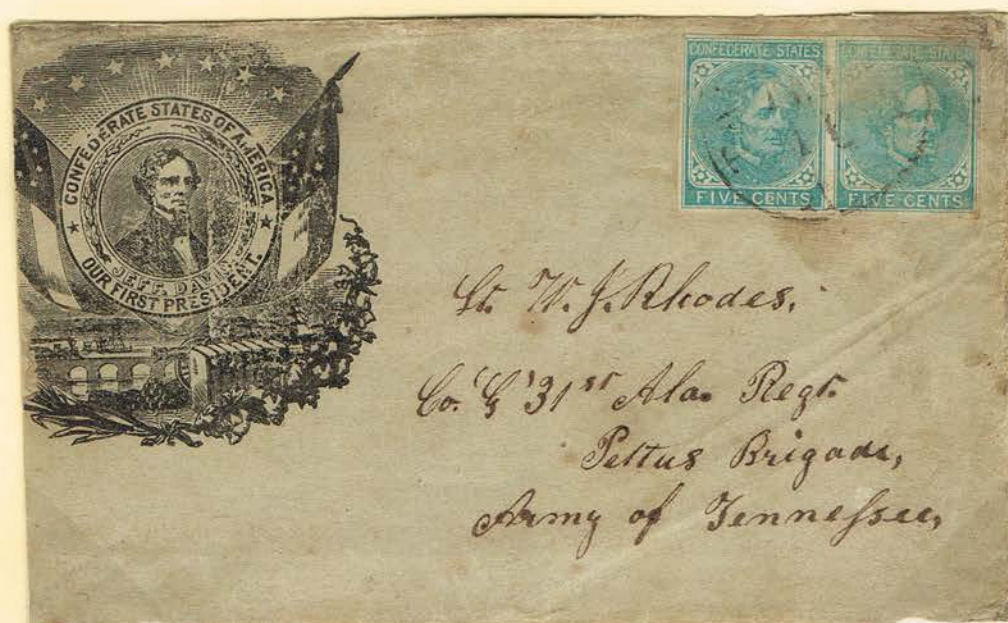 CONFEDERATE STATES OF AMERICA
JEFF. DAVIS
OUR FIRST PRESIDENT.
CONFEDERATE STATES
FIVE CENTS
CONFEDERATE STATES
FIVE CENTS
Lt. W. J. Rhodes.
Co. "G" 31st Ala. Regt.
Pettus Brigade,
Army of Tennessee,